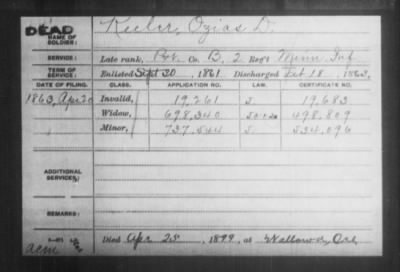 DEAD
NAME OF SOLDIER: Keeler, Ozias D.
SERVICE: Late rank, Pvt. Co. B, 2 Reg't Minn Inf
TERM OF SERVICE: Enlisted Sept 20, 1861 Discharged Feb 18, 1863
DATE OF FILING. CLASS. APPLICATION NO. LAW. CERTIFICATE NO.
1863, Apr 20 Invalid, 19,261 19,683
Widow, 698,340 498,809
Minor, 737,544 534,096
ADDITIONAL SERVICES:
REMARKS:
Died Apr 25, 1899, at Wallowa, Ore
acm